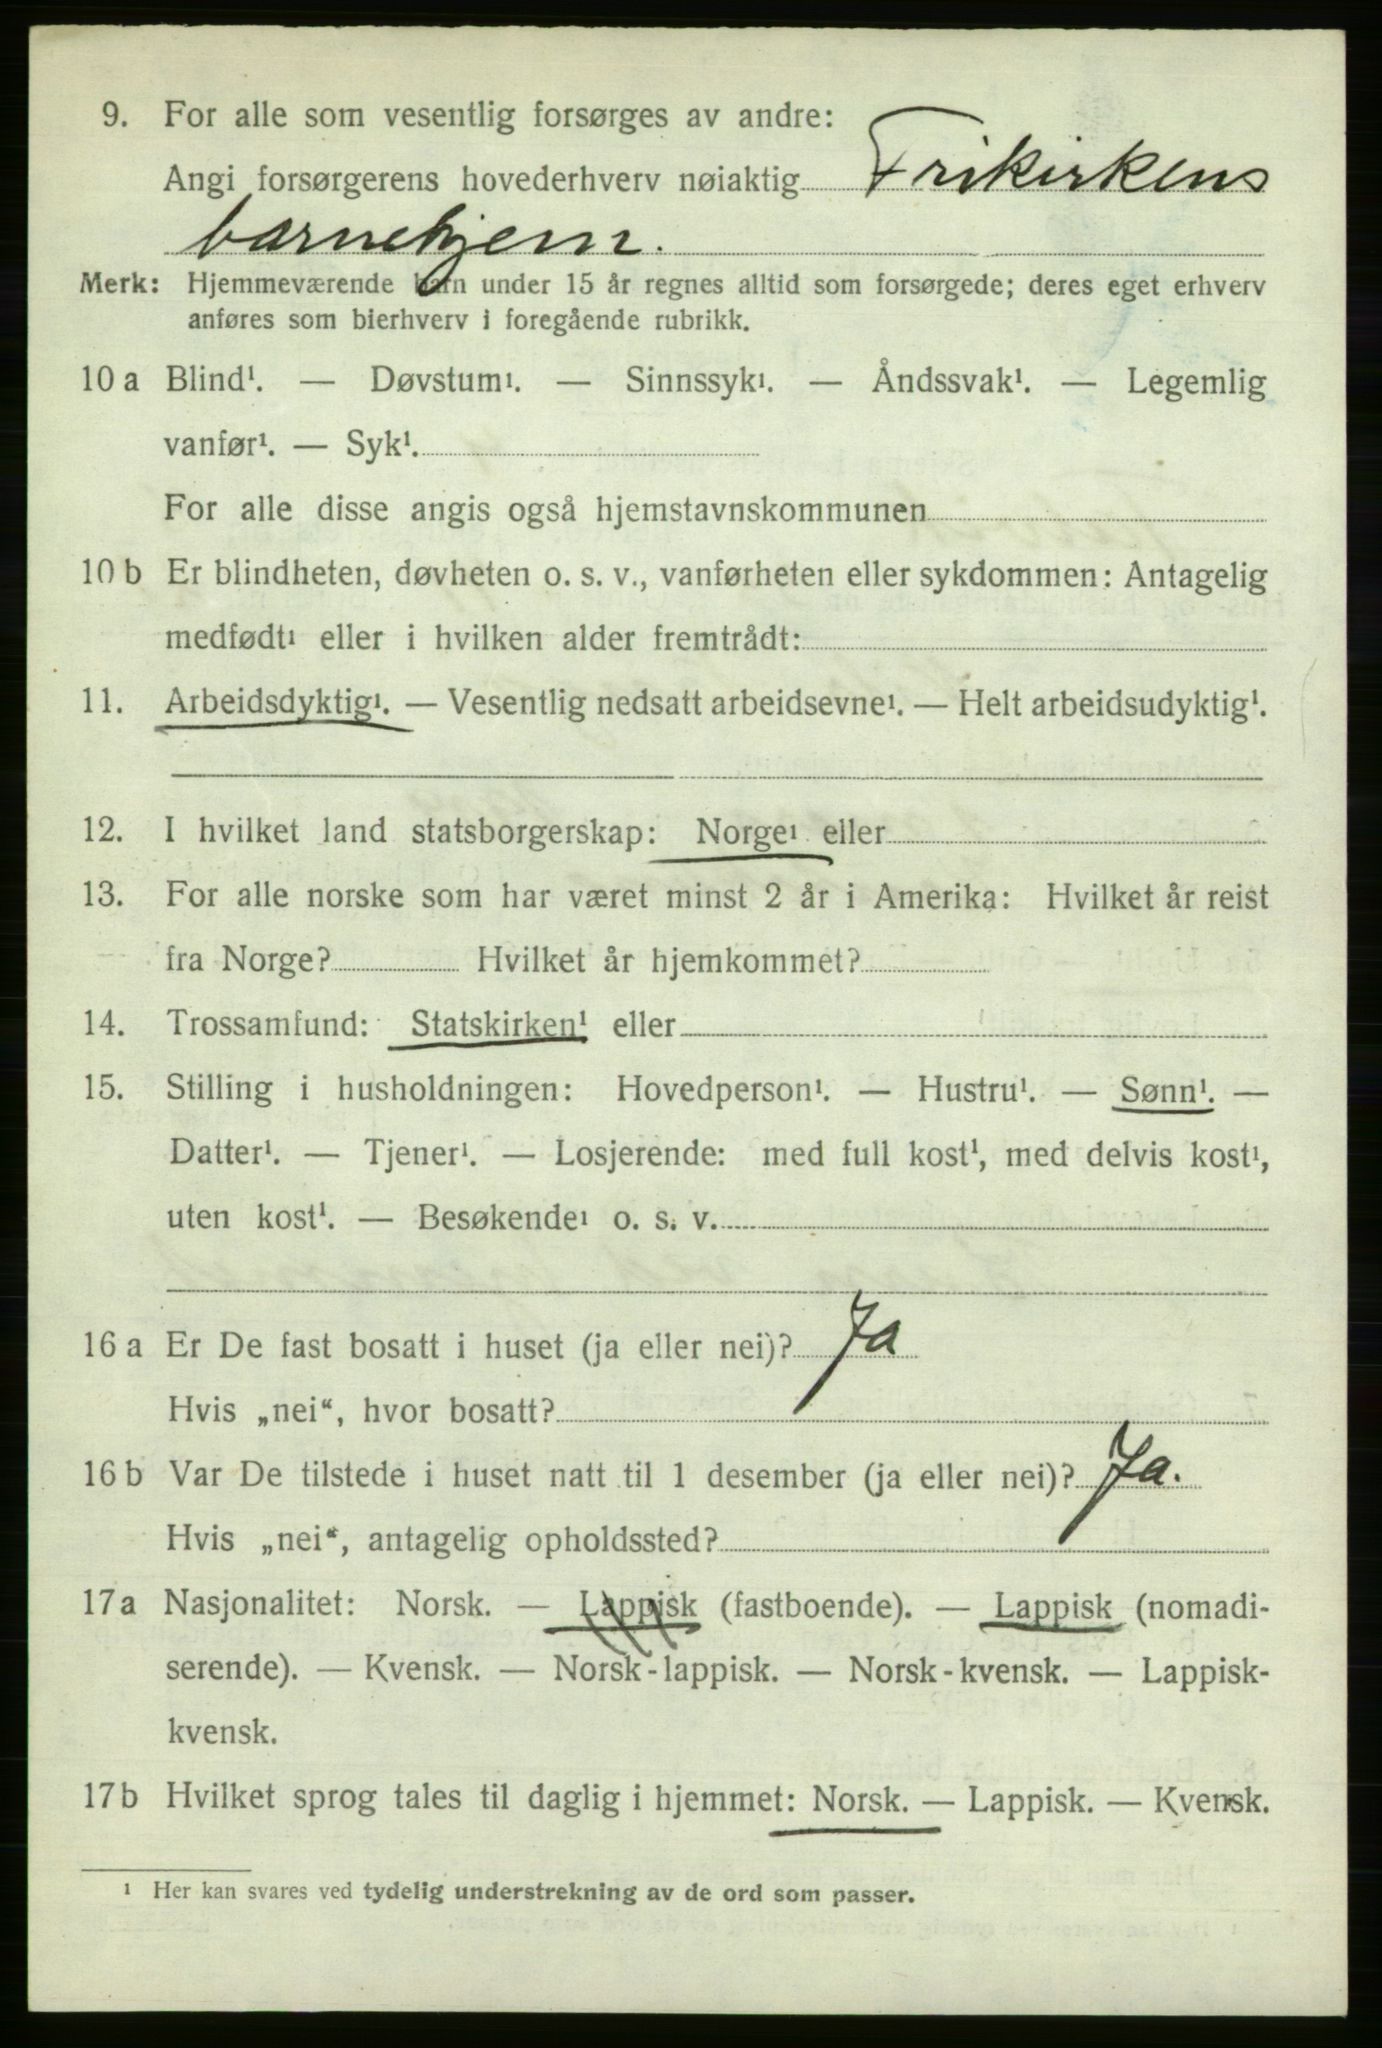 9. For alle som vesentlig forsørges av andre:
Angi forsørgerens hovederhverv nøiaktig Frikirkens
barnehjem.
Merk: Hjemmeværende barn under 15 år regnes alltid som forsørgede; deres eget erhverv
anføres som bierhverv i foregående rubrikk.
10 a Blind¹. — Døvstum¹. — Sinnssyk¹. — Åndssvak¹. — Legemlig
vanfør¹. — Syk¹.
For alle disse angis også hjemstavnskommunen
10 b Er blindheten, døvheten o. s. v., vanførheten eller sykdommen: Antagelig
medfødt¹ eller i hvilken alder fremtrådt:
11. Arbeidsdyktig¹. — Vesentlig nedsatt arbeidsevne¹. — Helt arbeidsudyktig¹.
12. I hvilket land statsborgerskap: Norge¹ eller
13. For alle norske som har været minst 2 år i Amerika: Hvilket år reist
fra Norge? Hvilket år hjemkommet?
14. Trossamfund: Statskirken¹ eller
15. Stilling i husholdningen: Hovedperson¹. — Hustru¹. — Sønn¹. —
Datter¹. — Tjener¹. — Losjerende: med full kost¹, med delvis kost¹,
uten kost¹. — Besøkende¹ o. s. v.
16 a Er De fast bosatt i huset (ja eller nei)? Ja
Hvis „nei“, hvor bosatt?
16 b Var De tilstede i huset natt til 1 desember (ja eller nei)? Ja.
Hvis „nei“, antagelig opholdssted?
17 a Nasjonalitet: Norsk. — Lappisk (fastboende). — Lappisk (nomadi-
serende). — Kvensk. — Norsk-lappisk. — Norsk-kvensk. — Lappisk-
kvensk.
17 b Hvilket sprog tales til daglig i hjemmet: Norsk. — Lappisk. — Kvensk.
¹ Her kan svares ved tydelig understrekning av de ord som passer.